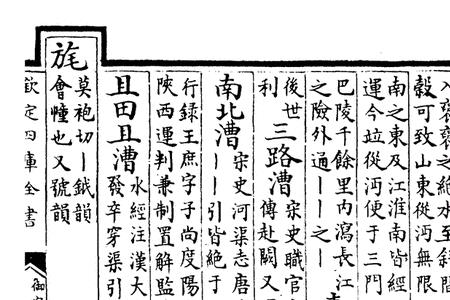 入褒褒之絶水至斜間
轂可致山東從沔無限
南之東及江淮南皆經
運今竝從沔便于三門
巴陵千餘里内瀉長江
之險外通丨丨之丨
後世
利
三路漕
宋史職官
傳赴闕又
南北漕
宋史河渠志唐
丨丨引皆絶于
行録王庶字子尚度陽
陝西運判兼制置解監
且田且漕
水經注漢大
發卒穿渠引
旄
莫袍切丨鉞韻
會幢也又號韻
欽定四庫全書
御